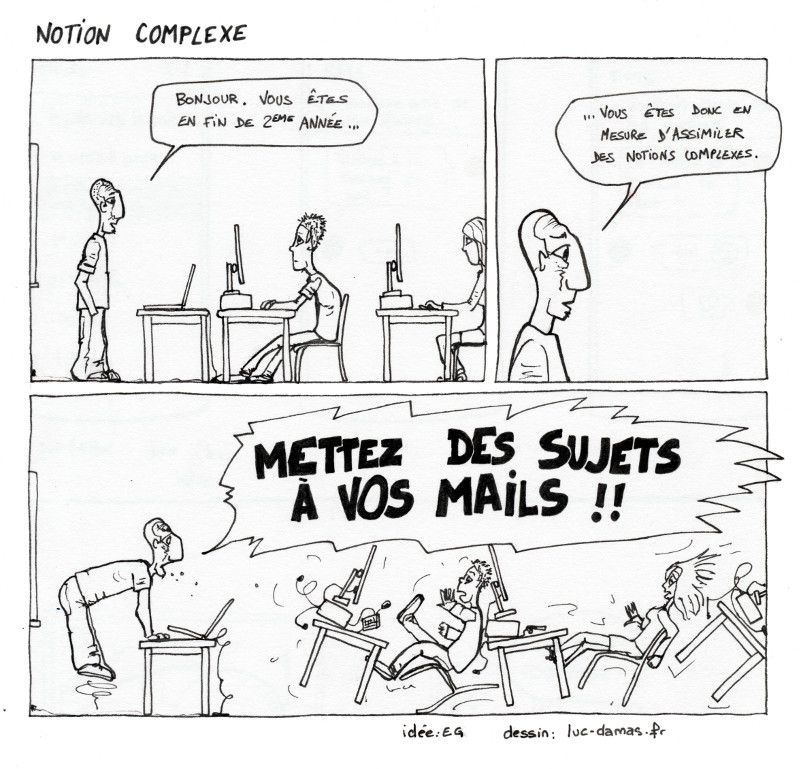 NOTION COMPLEXE
BONJOUR. VOUS ÊTES
EN FIN DE 2EME ANNÉE...
...VOUS ÊTES DONC EN
MESURE D'ASSIMILER
DES NOTIONS COMPLEXES.
METTEZ DES SUJETS
À VOS MAILS !!
idée: EG dessin: luc-damas.fr